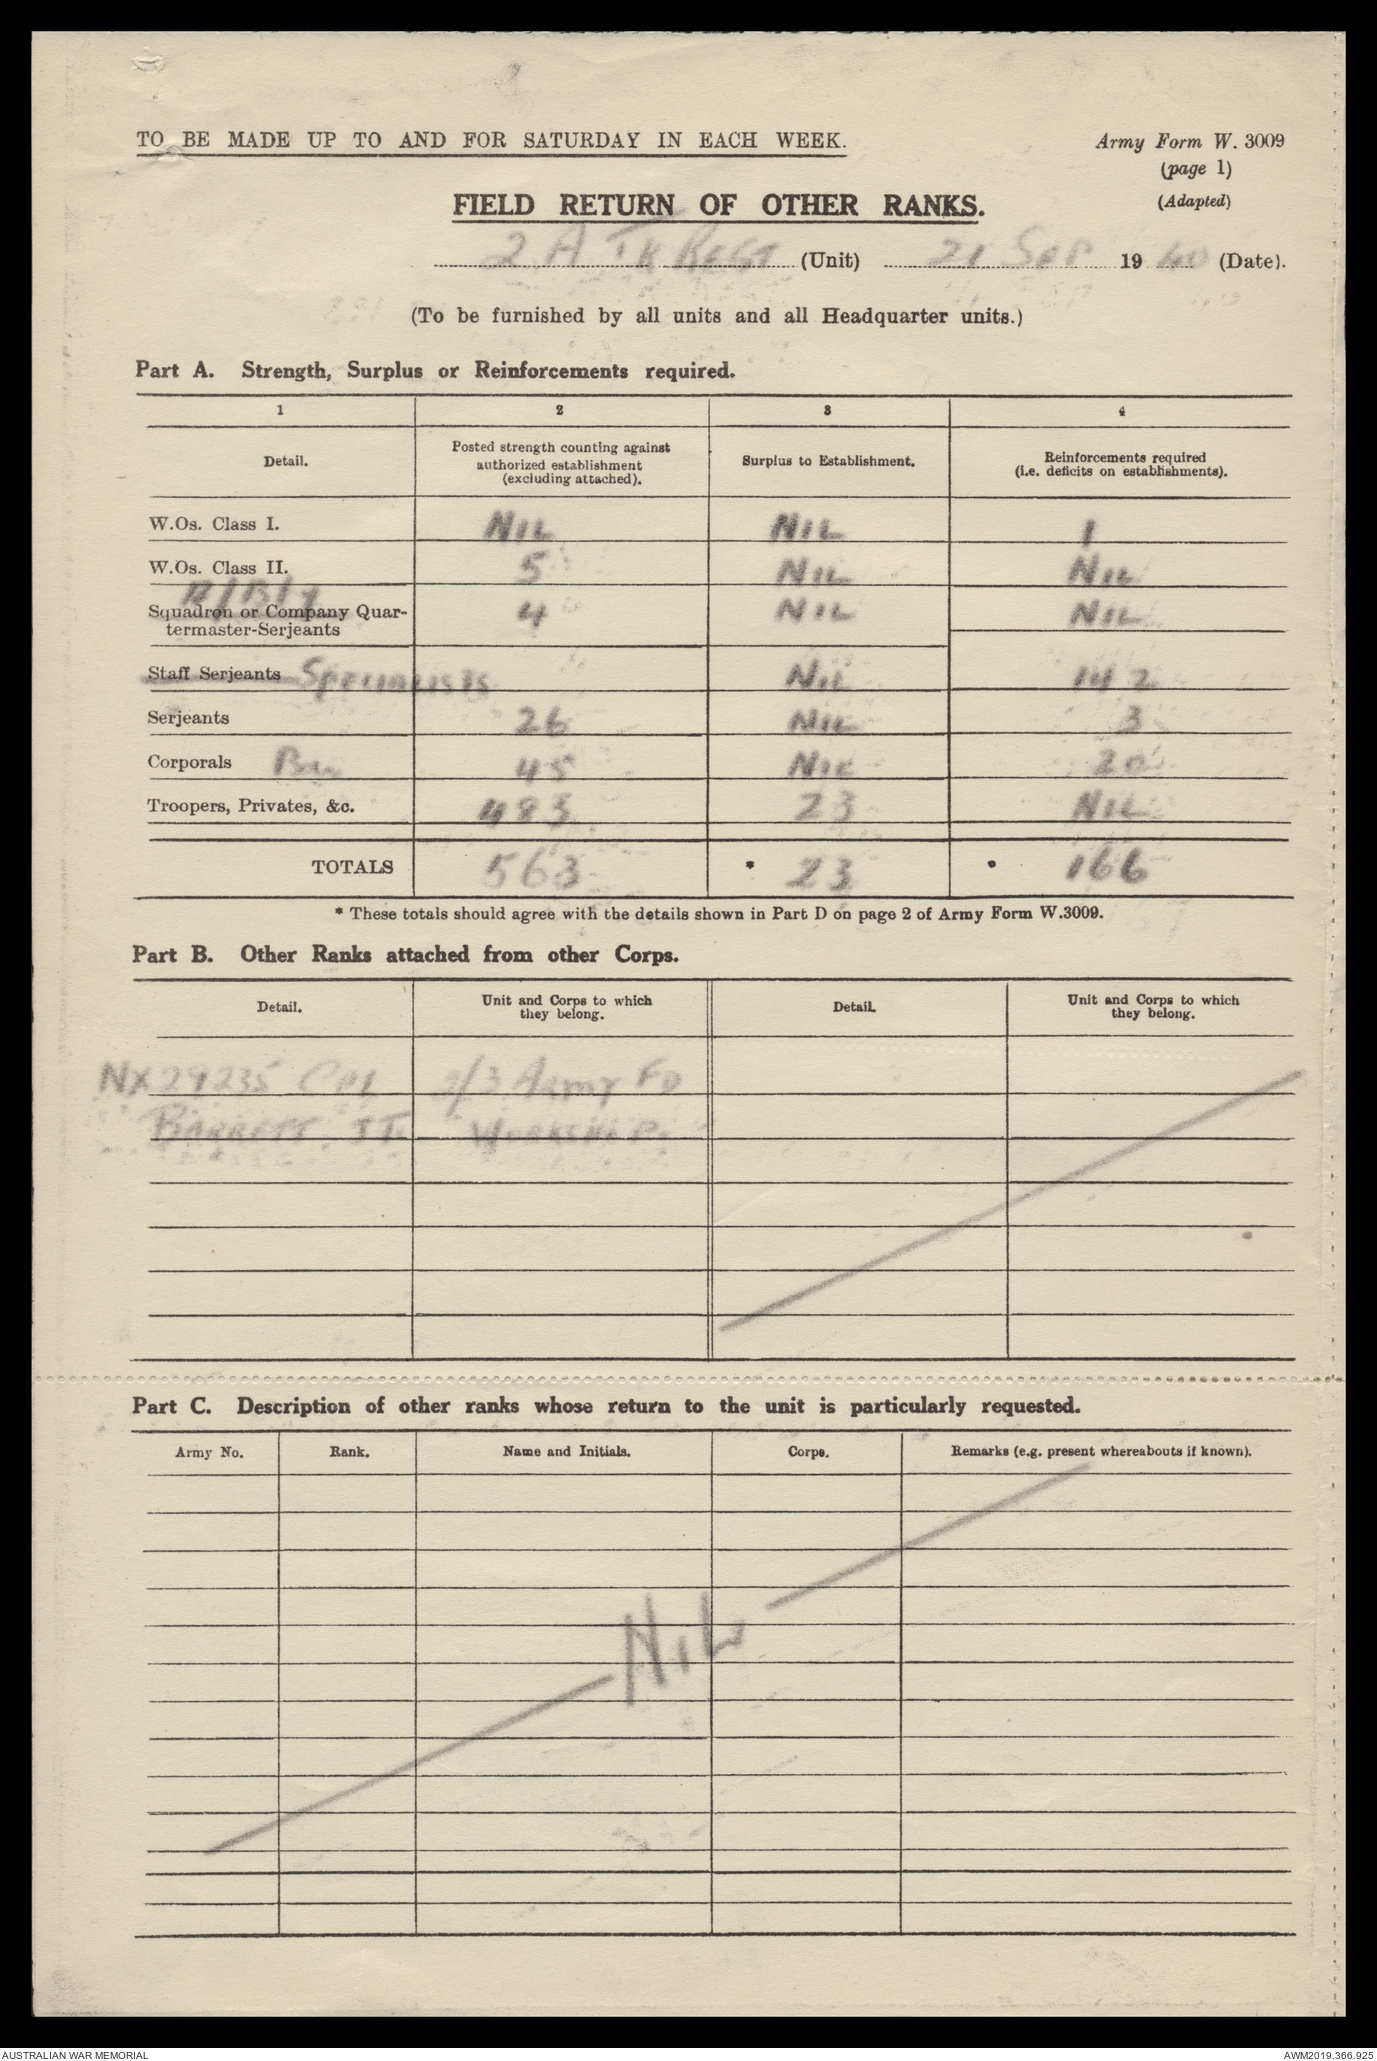 TO BE MADE UP TO AND FOR SATURDAY IN EACH WEEK.
Army Form W. 3009
(page 1)
(Adapted)
FIELD RETURN OF OTHER RANKS.
2 A Tk Regt (Unit) 21 Sep 1940 (Date).
(To be furnished by all units and all Headquarter units.)
Part A. Strength, Surplus or Reinforcements required.
1 2 3 4
Detail. Posted strength counting against authorized establishment (excluding attached). Surplus to Establishment. Reinforcements required (i.e. deficits on establishments).
W.Os. Class I. NIL NIL 1
W.Os. Class II. 5 NIL NIL
Squadron or Company Quar- 4 NIL NIL
termaster-Serjeants
Staff Serjeants Specialists NIL 142
Serjeants 26 NIL 3
Corporals 45 NIL 20
Troopers, Privates, &c. 483 23 NIL
TOTALS 563 * 23 * 166
* These totals should agree with the details shown in Part D on page 2 of Army Form W.3009.
Part B. Other Ranks attached from other Corps.
Detail. Unit and Corps to which they belong. Detail. Unit and Corps to which they belong.
NX29235 Cpl 2/3 Army Fd
Barrett JT. Workshop.
Part C. Description of other ranks whose return to the unit is particularly requested.
Army No. Rank. Name and Initials. Corps. Remarks (e.g. present whereabouts if known).
NIL
AUSTRALIAN WAR MEMORIAL
AWM2019.366.925